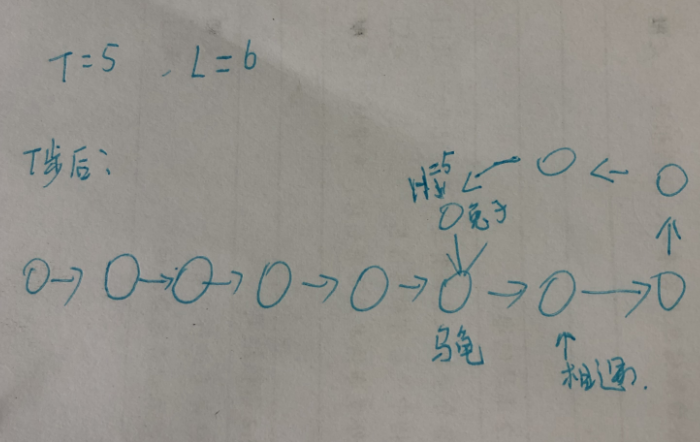 T=5 , L=6
T步后:
=5
兔子
乌龟
相遇.